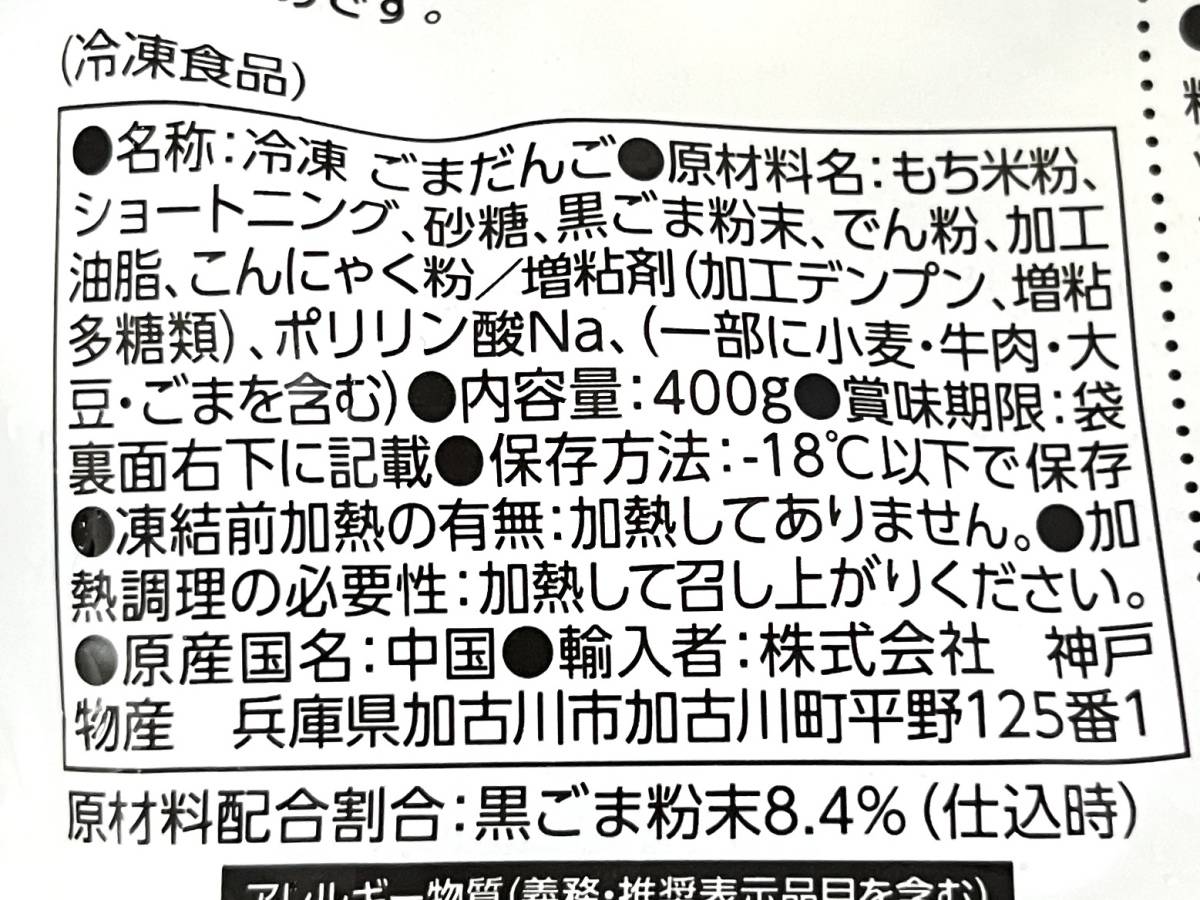 です。
(冷凍食品)
●名称:冷凍 ごまだんご●原材料名:もち米粉、
ショートニング、砂糖、黒ごま粉末、でん粉、加工
油脂、こんにゃく粉/増粘剤(加工デンプン、増粘
多糖類)、ポリリン酸Na、(一部に小麦・牛肉・大
豆・ごまを含む)●内容量:400g●賞味期限:袋
裏面右下に記載●保存方法:-18℃以下で保存
●凍結前加熱の有無:加熱してありません。●加
熱調理の必要性:加熱して召し上がりください。
●原産国名:中国●輸入者:株式会社 神戸
物産 兵庫県加古川市加古川町平野125番1
原材料配合割合:黒ごま粉末8.4%(仕込時)
アレルギー物質(義務・推奨表示品目を含む)